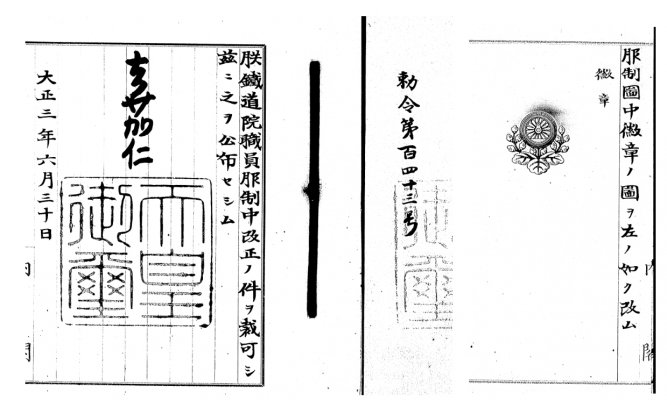 朕鐵道院職員服制中改正ノ件ヲ裁可シ
茲ニ之ヲ公布セシム
嘉仁
天皇御璽
大正三年六月三十日
勅令第百四十三号
服制圖中徽章ノ圖ヲ左ノ如ク改ム
徽章